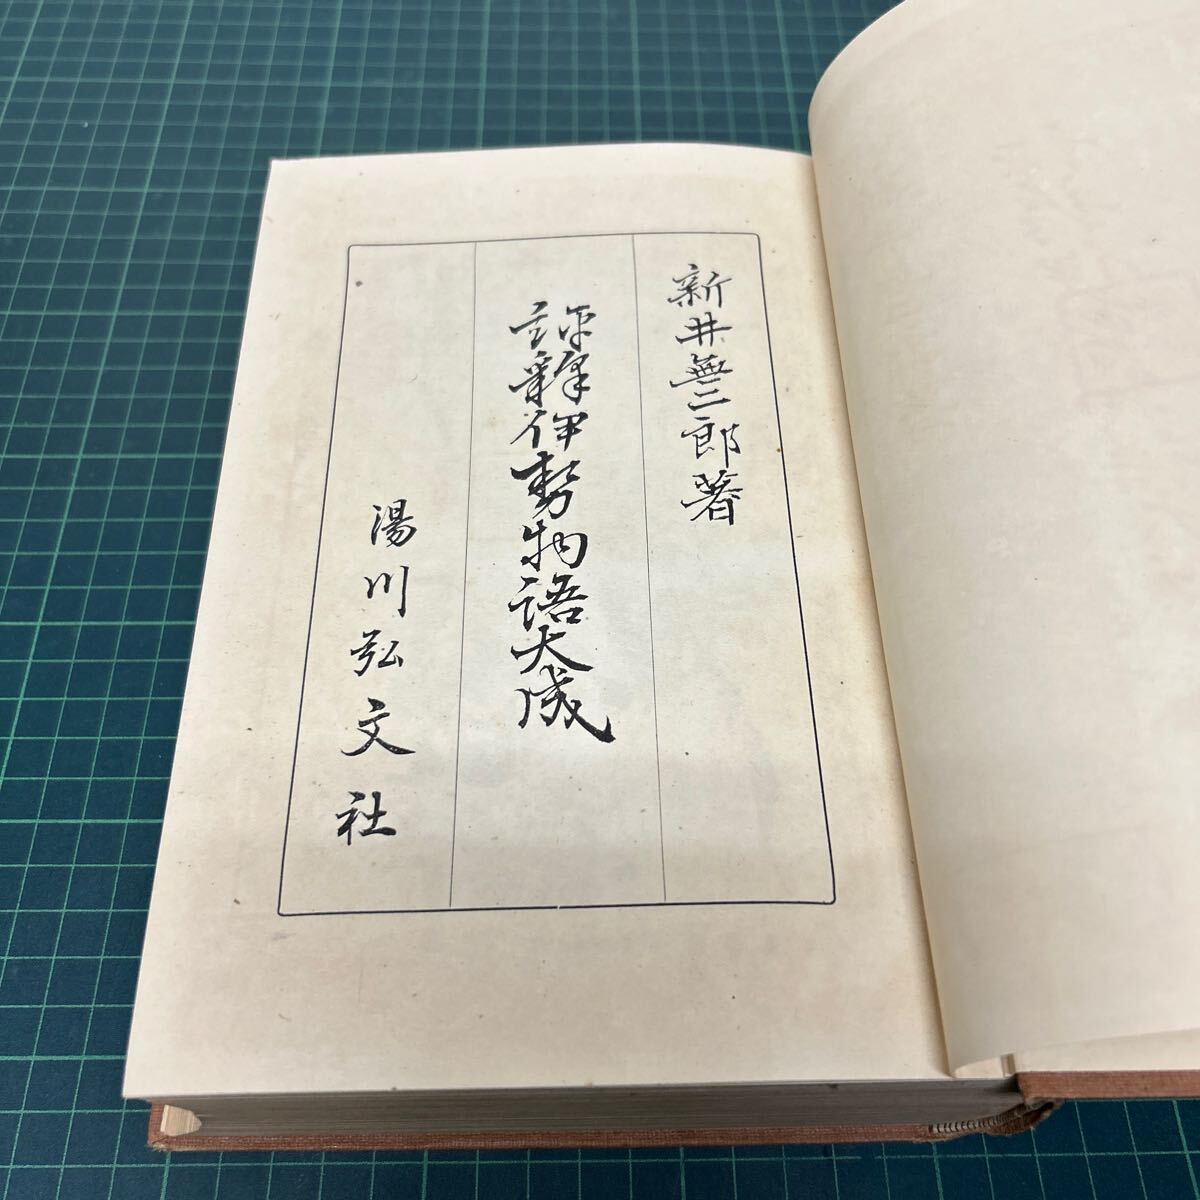 新井無二郎著
評釋伊勢物語大成
湯川弘文社